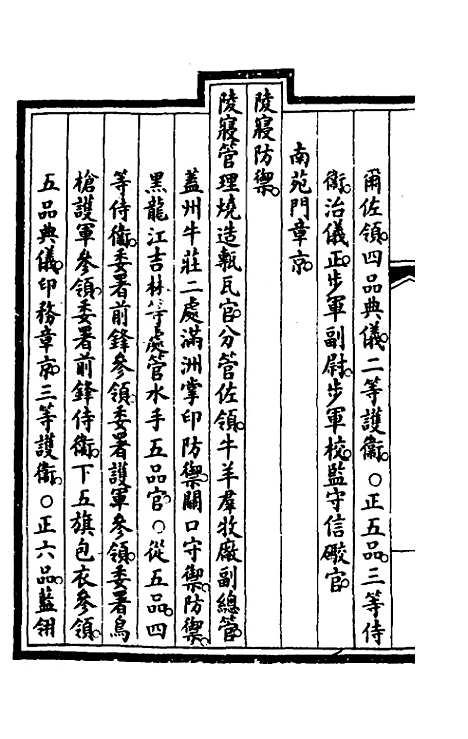 爾佐領四品典儀二等護衞○正五品三等侍
衞治儀正步軍副尉步軍校監守信礮官
南苑門章京
陵寢防禦
陵寢管理燒造甎瓦官分管佐領牛羊羣牧厰副總管
蓋州牛莊二處滿洲掌印防禦關口守禦防禦
黑龍江吉林等處管水手五品官○從五品四
等侍衞委署前鋒參領委署護軍參領委署鳥
槍護軍參領委署前鋒侍衞下五旗包衣參領
五品典儀印務章京三等護衞○正六品藍翎